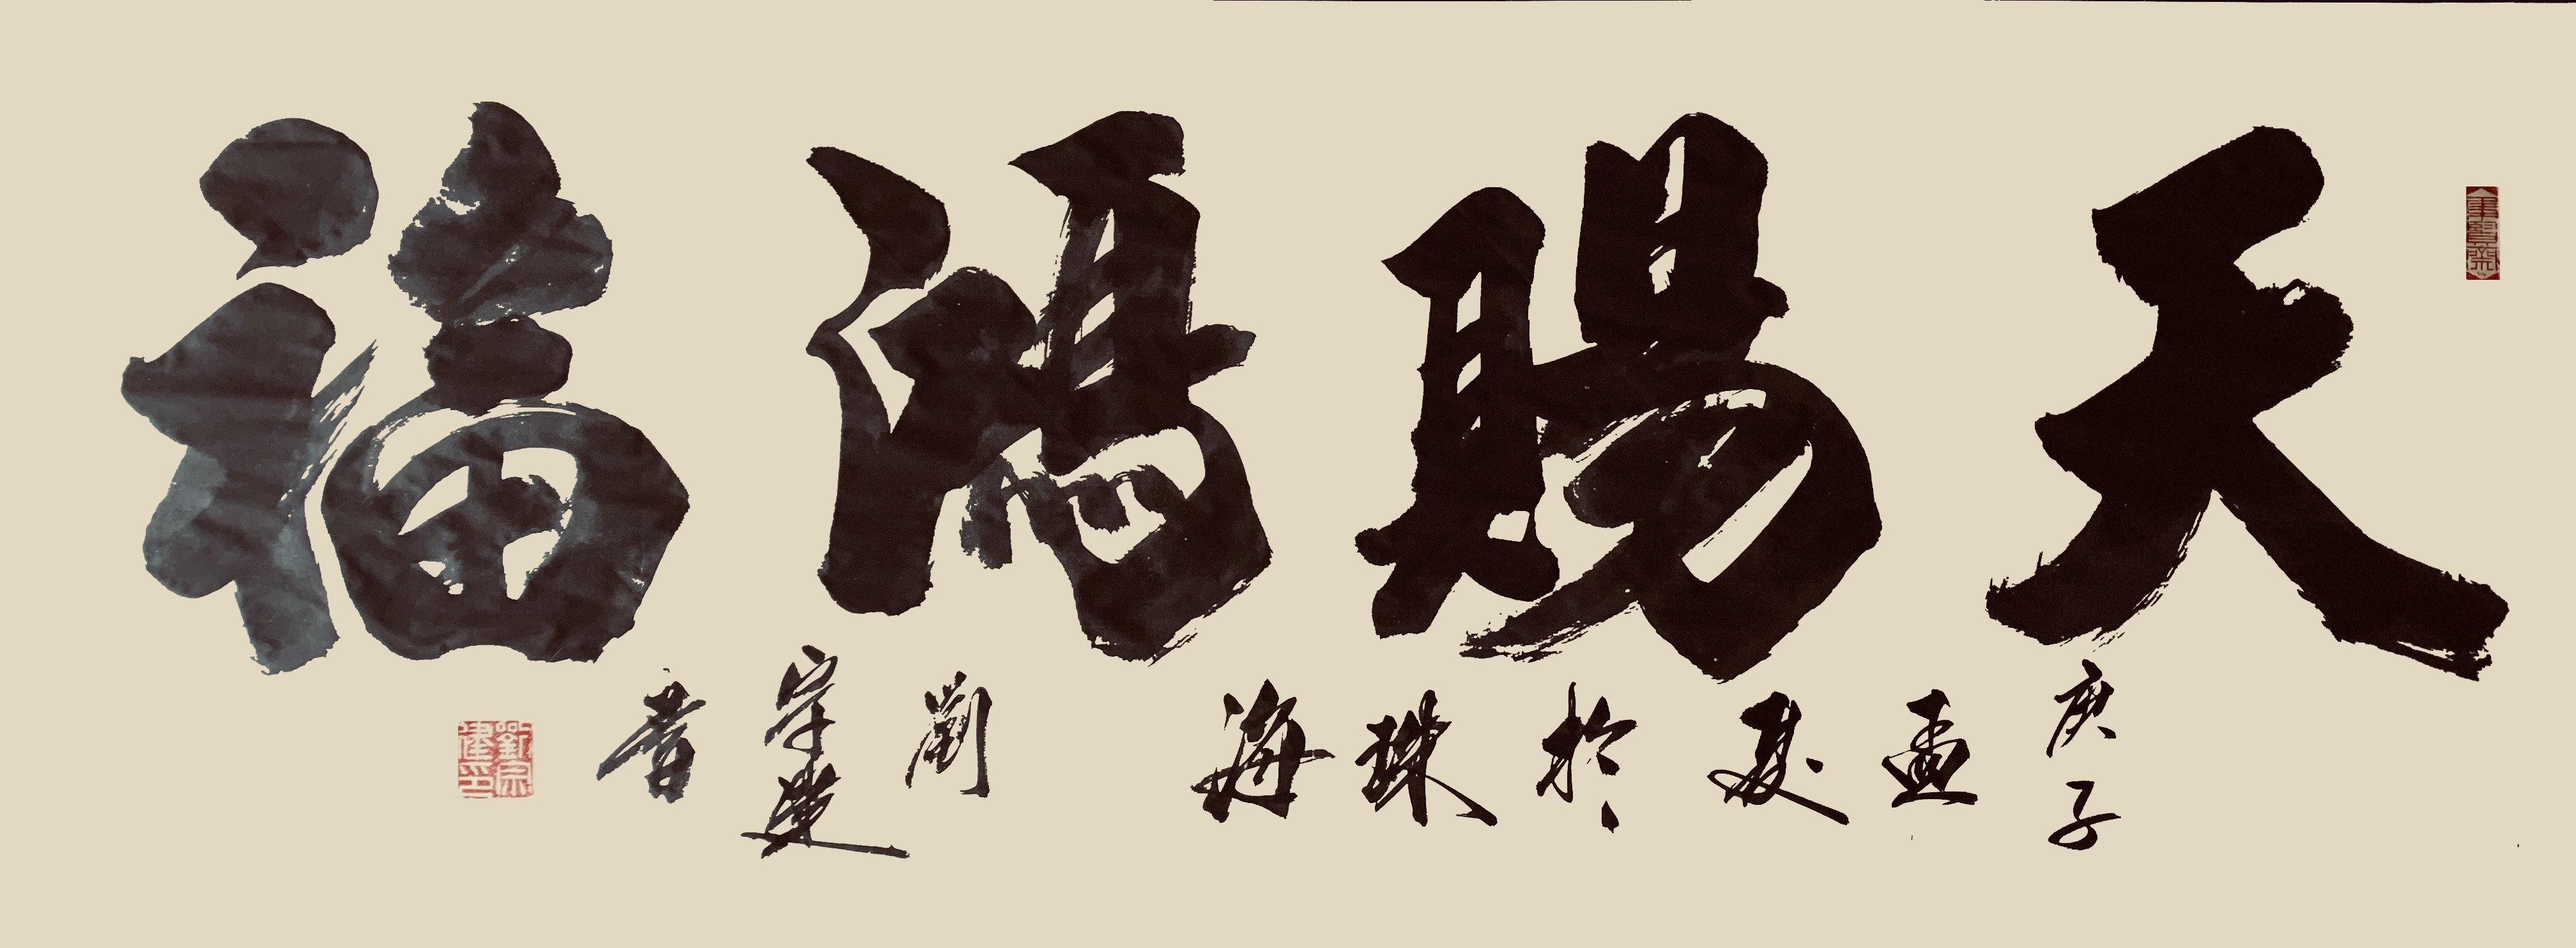 天賜鴻福
庚子孟夏於珠海
劉宗建書
劉宗建印